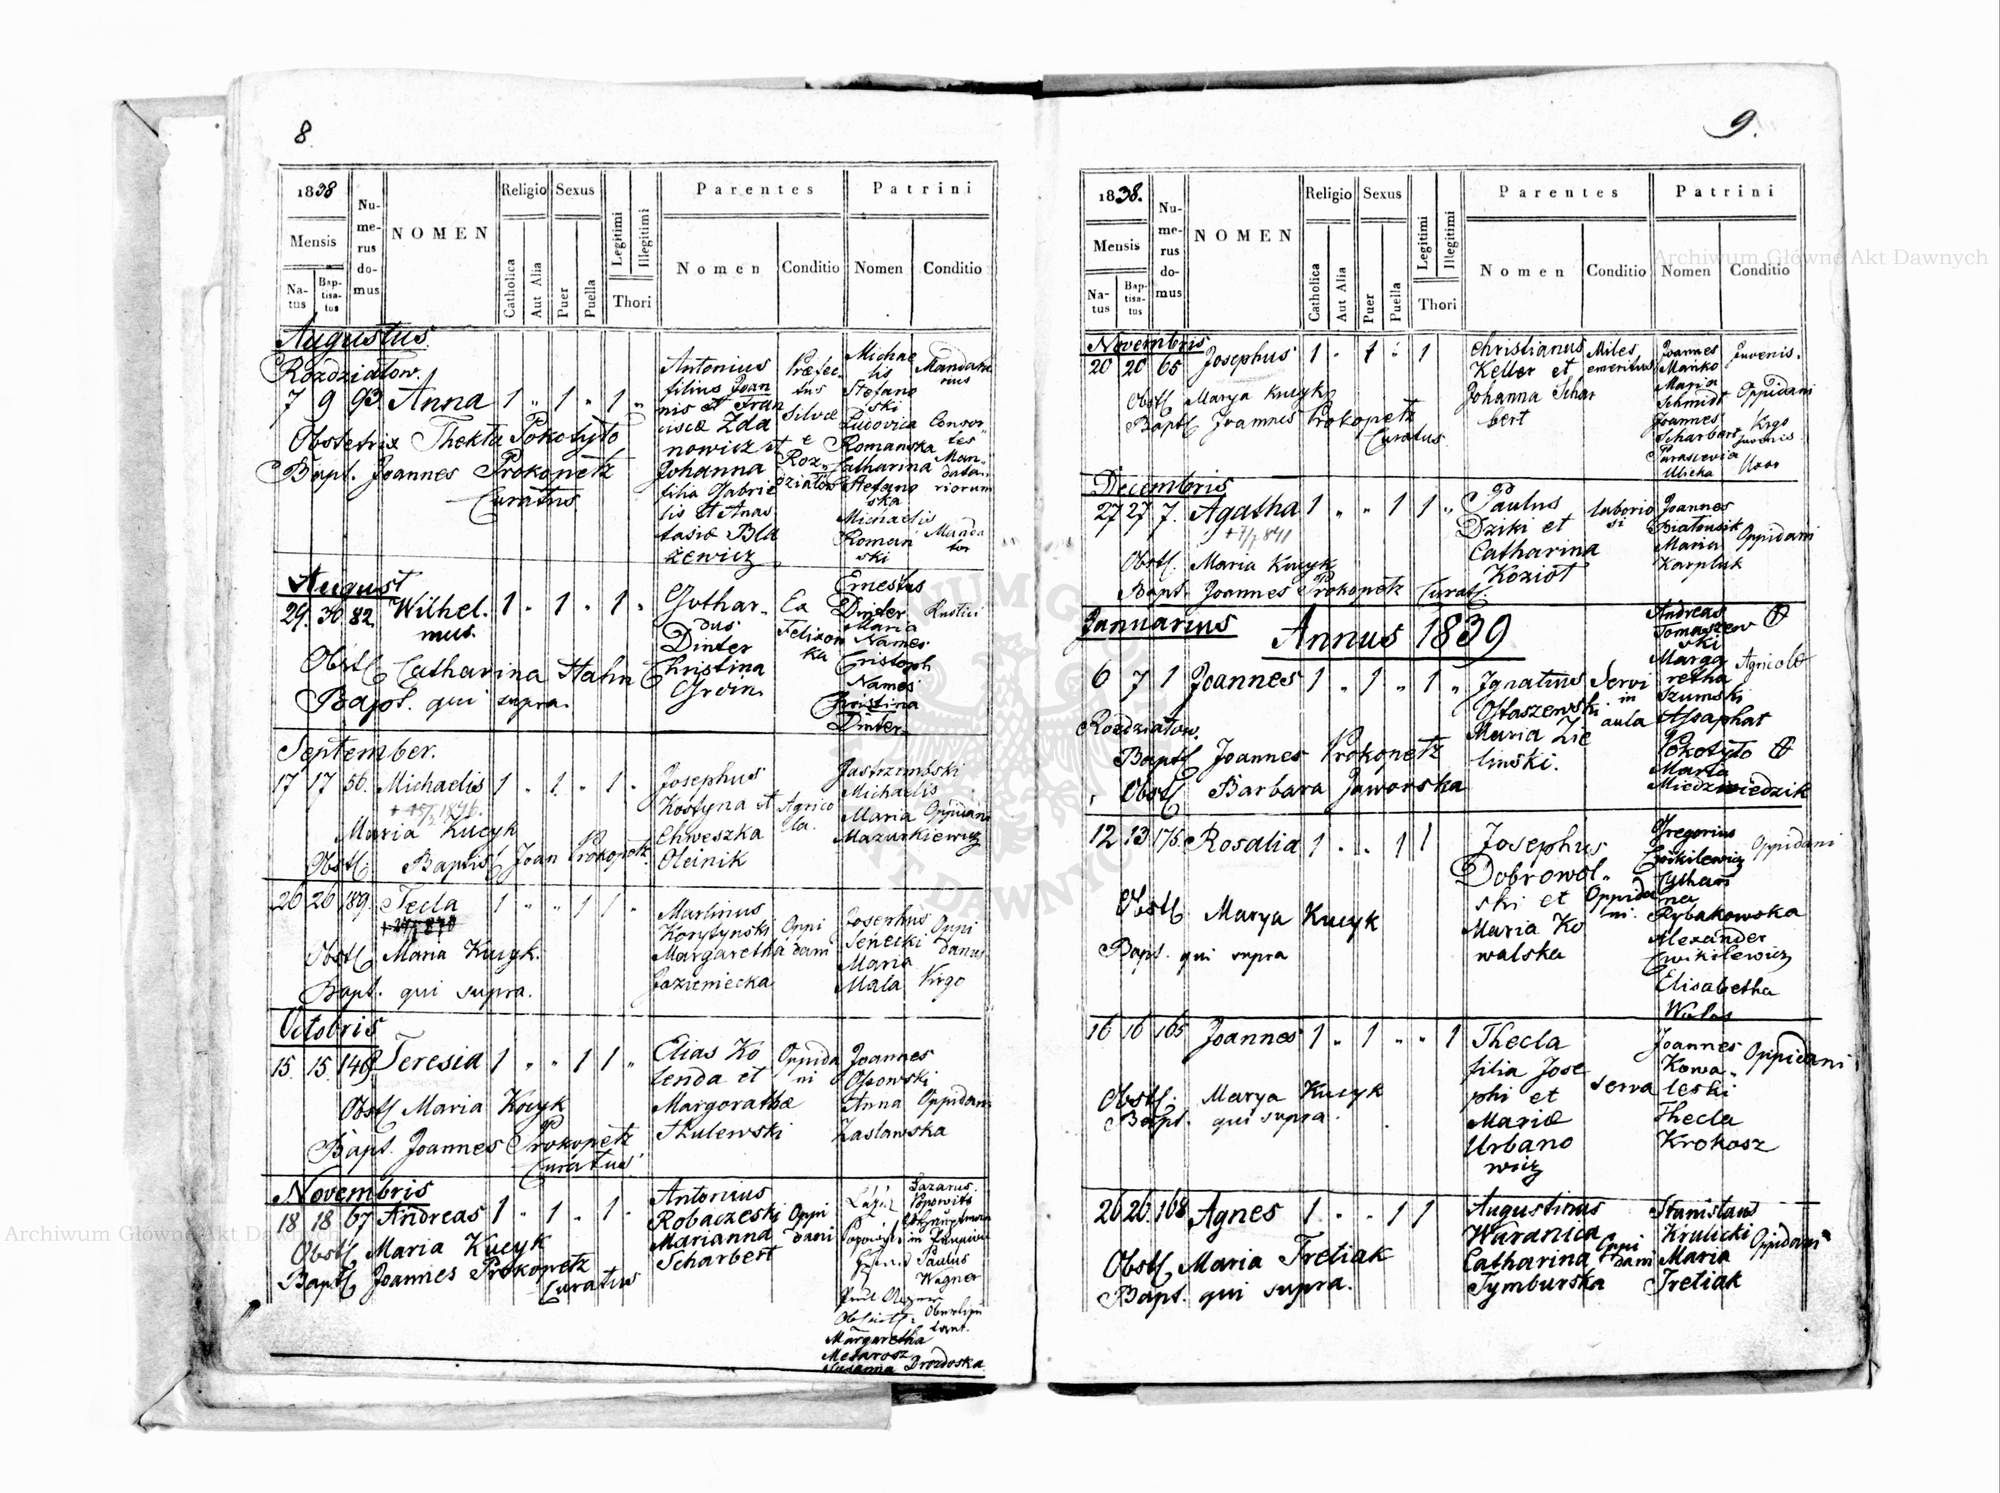 8.
1838
Mensis
Na-
tus
Bap-
tisa-
tus
Nu-
me-
rus
do-
mus
NOMEN
Religio
Catholica
Aut Alia
Sexus
Puer
Puella
Legitimi
Illegitimi
Thori
Parentes
Nomen
Conditio
Patrini
Nomen
Conditio
Augustus
Rozdziatow.
7 9 93. Anna 1 " 1 " 1 "
Obstetrix Thekta Pokotyto
Bapt. Joannes Prokopetz
Curatus
Antonius
filius Joan
nis et Fran
ciscæ Zda
nowicz et
Johanna
filia Gabrie
lis et Anas
tasiæ Bla
żewicz
Præfec-
tus
Silvæ
e
Roz-
dziatow
Michae
lis
Stefano
ski
Ludovica
Romanska
Catharina
Stefano
ska
Michaelis
Roman
ski
Mandata
rius
Consor-
tes
Man-
data-
riorum
Manda
tor
August
29. 30 82. Wilhel. 1 " 1 " 1 "
mus.
Obst. Catharina Hahn
Bapt. qui supra.
Gothar-
dus
Dinter
Christina
Grein
Ex
Felizon
ka
Ernestus
Dinter
Maria
Names
Cristoph
Names
Christina
Dinter
Rustici
September.
17 17 56. Michaelis 1 " 1 " 1 "
Maria Kucyk
Obst. Baptis Joan Prokopetz
Josephus
Kostyna et
Chweszka
Oleinik
Agrico
la.
Jastrzembski
Michaelis
Maria
Mazurkiewicz
Oppidani
26 26 189. Tecla 1 " " 1 1 "
Obst. Maria Kucyk.
Bapt. qui supra.
Martinus
Korytynski
Margaretha
Lazieniecka
Oppi
dani
Josephus
Senecki
Maria
Mala
Oppi
danus
Virgo
Octobris
15. 15. 149 Teresia 1 " " 1 1 "
Obst. Maria Kucyk
Bapt. Joannes Prokopetz
Curatus
Elias Ko
lenda et
Margorathæ
Skulewski
Oppida
ni
Joannes
Osowski
Anna
Zaslawska
Oppidani
Novembris
18 18 67 Andreas 1 " 1 " 1 "
Obst. Maria Kucyk
Bapt. Joannes Prokopetz
Curatus
Antonius
Robaczeski
Marianna
Scharbert
Oppi
dani
Lazarus
Popowits
Paulus
Wagner
Margaretha
Mesarosz
Susanna Drozdoska
9.
1838.
Mensis
Na-
tus
Bap-
tisa-
tus
Nu-
me-
rus
do-
mus
NOMEN
Religio
Catholica
Aut Alia
Sexus
Puer
Puella
Legitimi
Illegitimi
Thori
Parentes
Nomen
Conditio
Patrini
Nomen
Conditio
Novembris
20 20 65 Josephus 1 " 1 " 1
Obst. Marya Kucyk
Bapt. Joannes Prokopetz
Curatus
Christianus
Keller et
Johanna Schar
bert
Miles
emeritus
Joannes
Manko
Maria
Schmidt
Joannes
Scharbert
Parascevia
Ulicka
Juvenis.
Oppidani
Virgo
Juvenis
Uxor
Decembris
27 27 7. Agatha 1 " " 1 1 "
Obst. Maria Kucyk
Bapt. Joannes Prokopetz Curat.
Paulus
Dziki et
Catharina
Koziot
laborio
si
Joannes
Biatousik
Maria
Karpluk
Oppidani
Januarius
Annus 1839
6 7 1 Joannes 1 " 1 " 1 "
Rozdziatow.
Bapt. Joannes Prokopetz
Obst. Barbara Jaworska
Ignatius
Ostaszewski
Maria Zie
linski.
Servi
in
aula
Andreas
Tomaszew
ski
Marga
retha
Szumski
Assaphat
Pokotyto
Maria
Miedzwiedzik
Agricolæ
12 13 175. Rosalia 1 " " 1 1
Obst. Marya Kucyk
Bapt. qui supra
Josephus
Dobrowol-
ski et
Maria Ko
walska
Oppida
ni.
Gregorius
Cwikilewicz
Cathari
na
Rybakowska
Alexander
Cwikilewicz
Elisabetha
Wulas
Oppidani
16 16 165 Joannes 1 " 1 " " 1
Obst. Marya Kucyk
Bapt. qui supra.
Thecla
filia Jose
phi et
Mariæ
Urbano
wicz
serva
Joannes
Kowa-
leski
Thecla
Krokosz
Oppidani
26 26 168 Agnes 1 " " 1 1
Obst. Maria Tretiak
Bapt. qui supra.
Augustinus
Waranica
Catharina
Tymburska
Oppi
dani
Stanislaus
Krulicki
Maria
Tretiak
Oppidani
Archiwum Główne Akt Dawnych
Archiwum Główne Akt Dawnych